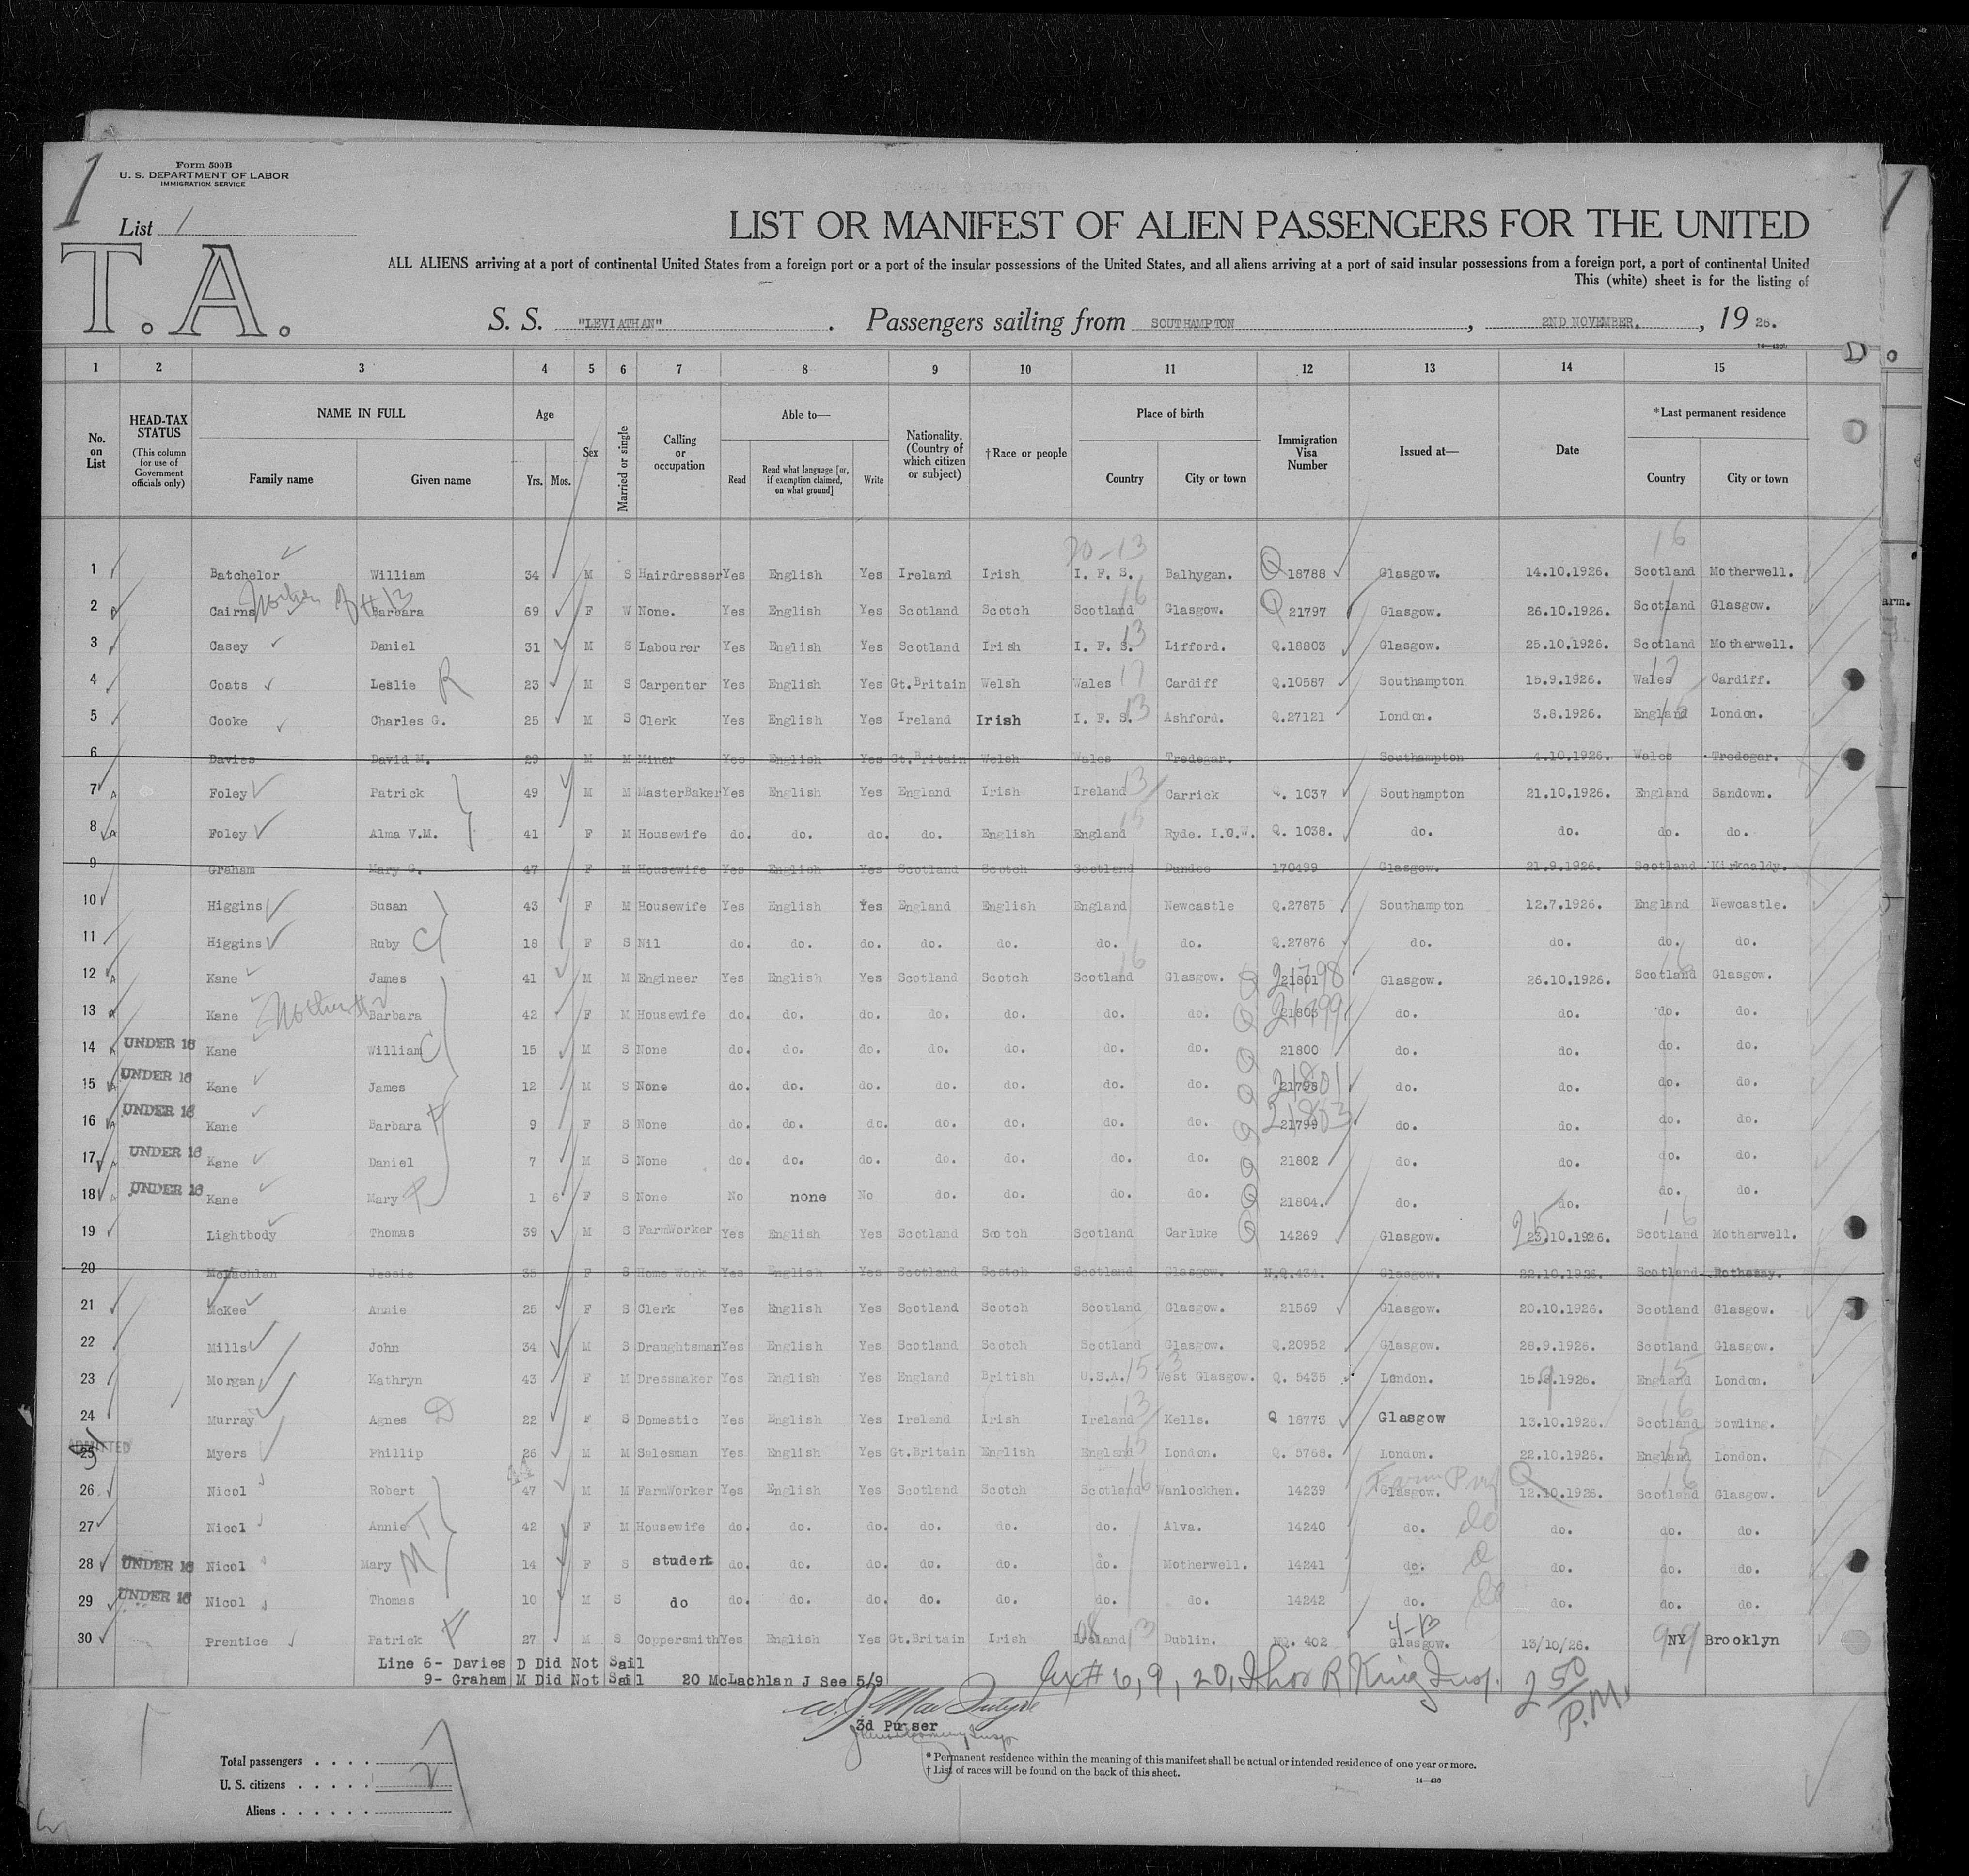 1
Form 500B
U. S. DEPARTMENT OF LABOR
IMMIGRATION SERVICE
List 1
T. A.
LIST OR MANIFEST OF ALIEN PASSENGERS FOR THE UNITED
ALL ALIENS arriving at a port of continental United States from a foreign port or a port of the insular possessions of the United States, and all aliens arriving at a port of said insular possessions from a foreign port, a port of continental United
This (white) sheet is for the listing of
S. S. "LEVIATHAN" . Passengers sailing from SOUTHAMPTON , 2ND NOVEMBER. , 19 26.
1 2 3 4 5 6 7 8 9 10 11 12 13 14 15
No. on List HEAD-TAX STATUS (This column for use of Government officials only) NAME IN FULL Family name Given name Age Yrs. Mos. Sex Married or single Calling or occupation Able to— Read Read what language [or, if exemption claimed, on what ground] Write Nationality. (Country of which citizen or subject) †Race or people Place of birth Country City or town Immigration Visa Number Issued at— Date *Last permanent residence Country City or town
1 Batchelor William 34 M S Hairdresser Yes English Yes Ireland Irish I. F. S. Balhygan. Q 18788 Glasgow. 14.10.1926. Scotland Motherwell.
2 Cairns Mother of #13 Barbara 69 F W None. Yes English Yes Scotland Scotch Scotland Glasgow. Q 21797 Glasgow. 26.10.1926. Scotland Glasgow.
3 Casey Daniel 31 M S Labourer Yes English Yes Scotland Irish I. F. S. Lifford. Q.18803 Glasgow. 25.10.1926. Scotland Motherwell.
4 Coats Leslie R 23 M S Carpenter Yes English Yes Gt.Britain Welsh Wales 17 Cardiff Q.10587 Southampton 15.9.1926. Wales Cardiff.
5 Cooke Charles G. 25 M S Clerk Yes English Yes Ireland Irish I. F. S. Ashford. Q.27121 London. 3.8.1926. England London.
6 Davies David M. 29 M M Miner Yes English Yes Gt.Britain Welsh Wales Tredegar. Southampton 4.10.1926. Wales Tredegar.
7 Foley Patrick 49 M M MasterBaker Yes English Yes England Irish Ireland Carrick Q. 1037 Southampton 21.10.1926. England Sandown.
8 Foley Alma V.M. 41 F M Housewife do. do. do. do. English England Ryde. I.O.W. Q. 1038. do. do. do. do.
9 Graham Mary G. 47 F M Housewife Yes English Yes Scotland Scotch Scotland Dundee 170499 Glasgow. 21.9.1926. Scotland Kirkcaldy.
10 Higgins Susan 43 F M Housewife Yes English Yes England English England Newcastle Q.27875 Southampton 12.7.1926. England Newcastle.
11 Higgins Ruby C 18 F S Nil do. do. do. do. do. do. do. Q.27876 do. do. do. do.
12 Kane James 41 M M Engineer Yes English Yes Scotland Scotch Scotland Glasgow. Q 21801 21798 Glasgow. 26.10.1926. Scotland Glasgow.
13 Kane Mother #2 Barbara 42 F M Housewife do. do. do. do. do. do. do. Q 21803 21799 do. do. do. do.
14 UNDER 16 Kane William C 15 M S None do. do. do. do. do. do. do. Q 21800 do. do. do. do.
15 UNDER 16 Kane James 12 M S None do. do. do. do. do. do. do. Q 21798 21801 do. do. do. do.
16 UNDER 16 Kane Barbara 9 F S None do. do. do. do. do. do. do. Q 21799 21803 do. do. do. do.
17 UNDER 16 Kane Daniel 7 M S None do. do. do. do. do. do. do. Q 21802 do. do. do. do.
18 UNDER 16 Kane Mary 1 6 F S None No none No do. do. do. do. Q 21804. do. do. do. do.
19 Lightbody Thomas 39 M S FarmWorker Yes English Yes Scotland Scotch Scotland Carluke Q 14269 Glasgow. 23.10.1926. Scotland Motherwell.
20 McLachlan Jessie 35 F S Home Work Yes English Yes Scotland Scotch Scotland Glasgow. N.Q.434. Glasgow. 22.10.1926. Scotland Rothesay.
21 McKee Annie 25 F S Clerk Yes English Yes Scotland Scotch Scotland Glasgow. 21569 Glasgow. 20.10.1926. Scotland Glasgow.
22 Mills John 34 M S Draughtsman Yes English Yes Scotland Scotch Scotland Glasgow. Q.20952 Glasgow. 28.9.1926. Scotland Glasgow.
23 Morgan Kathryn 43 F M Dressmaker Yes English Yes England British U.S.A. West Glasgow. Q. 5435 London. 15.9.1926. England London.
24 Murray Agnes D 22 F S Domestic Yes English Yes Ireland Irish Ireland Kells. Q 18773 Glasgow 13.10.1926. Scotland Bowling.
ADMITTED
25 Myers Phillip 26 M M Salesman Yes English Yes Gt.Britain English England London. Q. 5768. London. 22.10.1926. England London.
26 Nicol Robert 47 M M FarmWorker Yes English Yes Scotland Scotch Scotland Wanlockhen. 14239 Glasgow. 12.10.1926. Scotland Glasgow.
27 Nicol Annie 42 F M Housewife do. do. do. do. do. do. Alva. 14240 do. do. do. do.
28 UNDER 16 Nicol Mary M 14 F S student do. do. do. do. do. do. Motherwell. 14241 do. do. do. do.
29 UNDER 16 Nicol Thomas 10 M S do do. do. do. do. do. do. do. 14242 do. do. do. do.
30 Prentice Patrick 27 M S Coppersmith Yes English Yes Gt.Britain Irish Ireland Dublin. NQ. 402 Glasgow. 13/10/26. NY Brooklyn
Line 6- Davies D Did Not Sail
9- Graham M Did Not Sail 20 McLachlan J See 5/9
Ex# 6, 9, 20, Thos R King Insp. 2 50 P.M.
3d Purser
Total passengers . . . .
U. S. citizens . . . . .
Aliens . . . . . .
* Permanent residence within the meaning of this manifest shall be actual or intended residence of one year or more.
† List of races will be found on the back of this sheet.
14—430